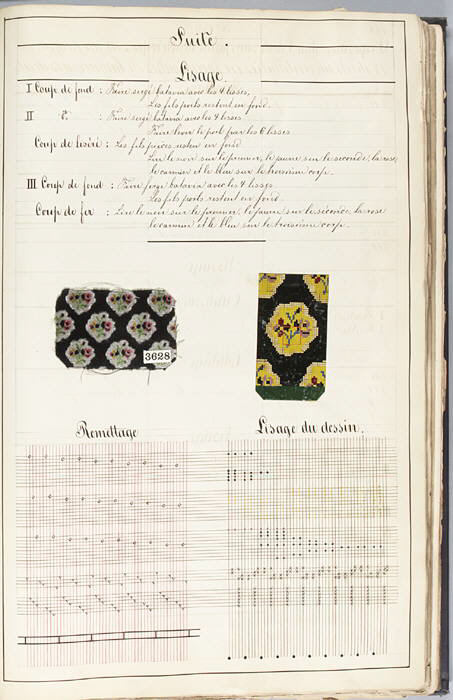 Suite.
Lisage.
I Coup de fond : Faire sergé batavia avec les 4 lisses,
Les fils poils restent en fond.
II d° : Faire sergé batavia avec les 4 lisses
Faire lever le poil par les 6 lisses
Coup de liséré : Les fils pièces restent en fond
Lire le noir sur le premier, le jaune sur le seconde, la rose,
le carmin et le bleu sur le troisième corp.
III Coup de fond : Faire serge batavia avec les 4 lisses
Les fils poils restent en fond.
Coup de fer : Lire le noir sur le premier, le jaune sur le seconde, la rose
le carmin et le bleu sur le troisième corp.
3628
Remettage
Lisage du dessin.